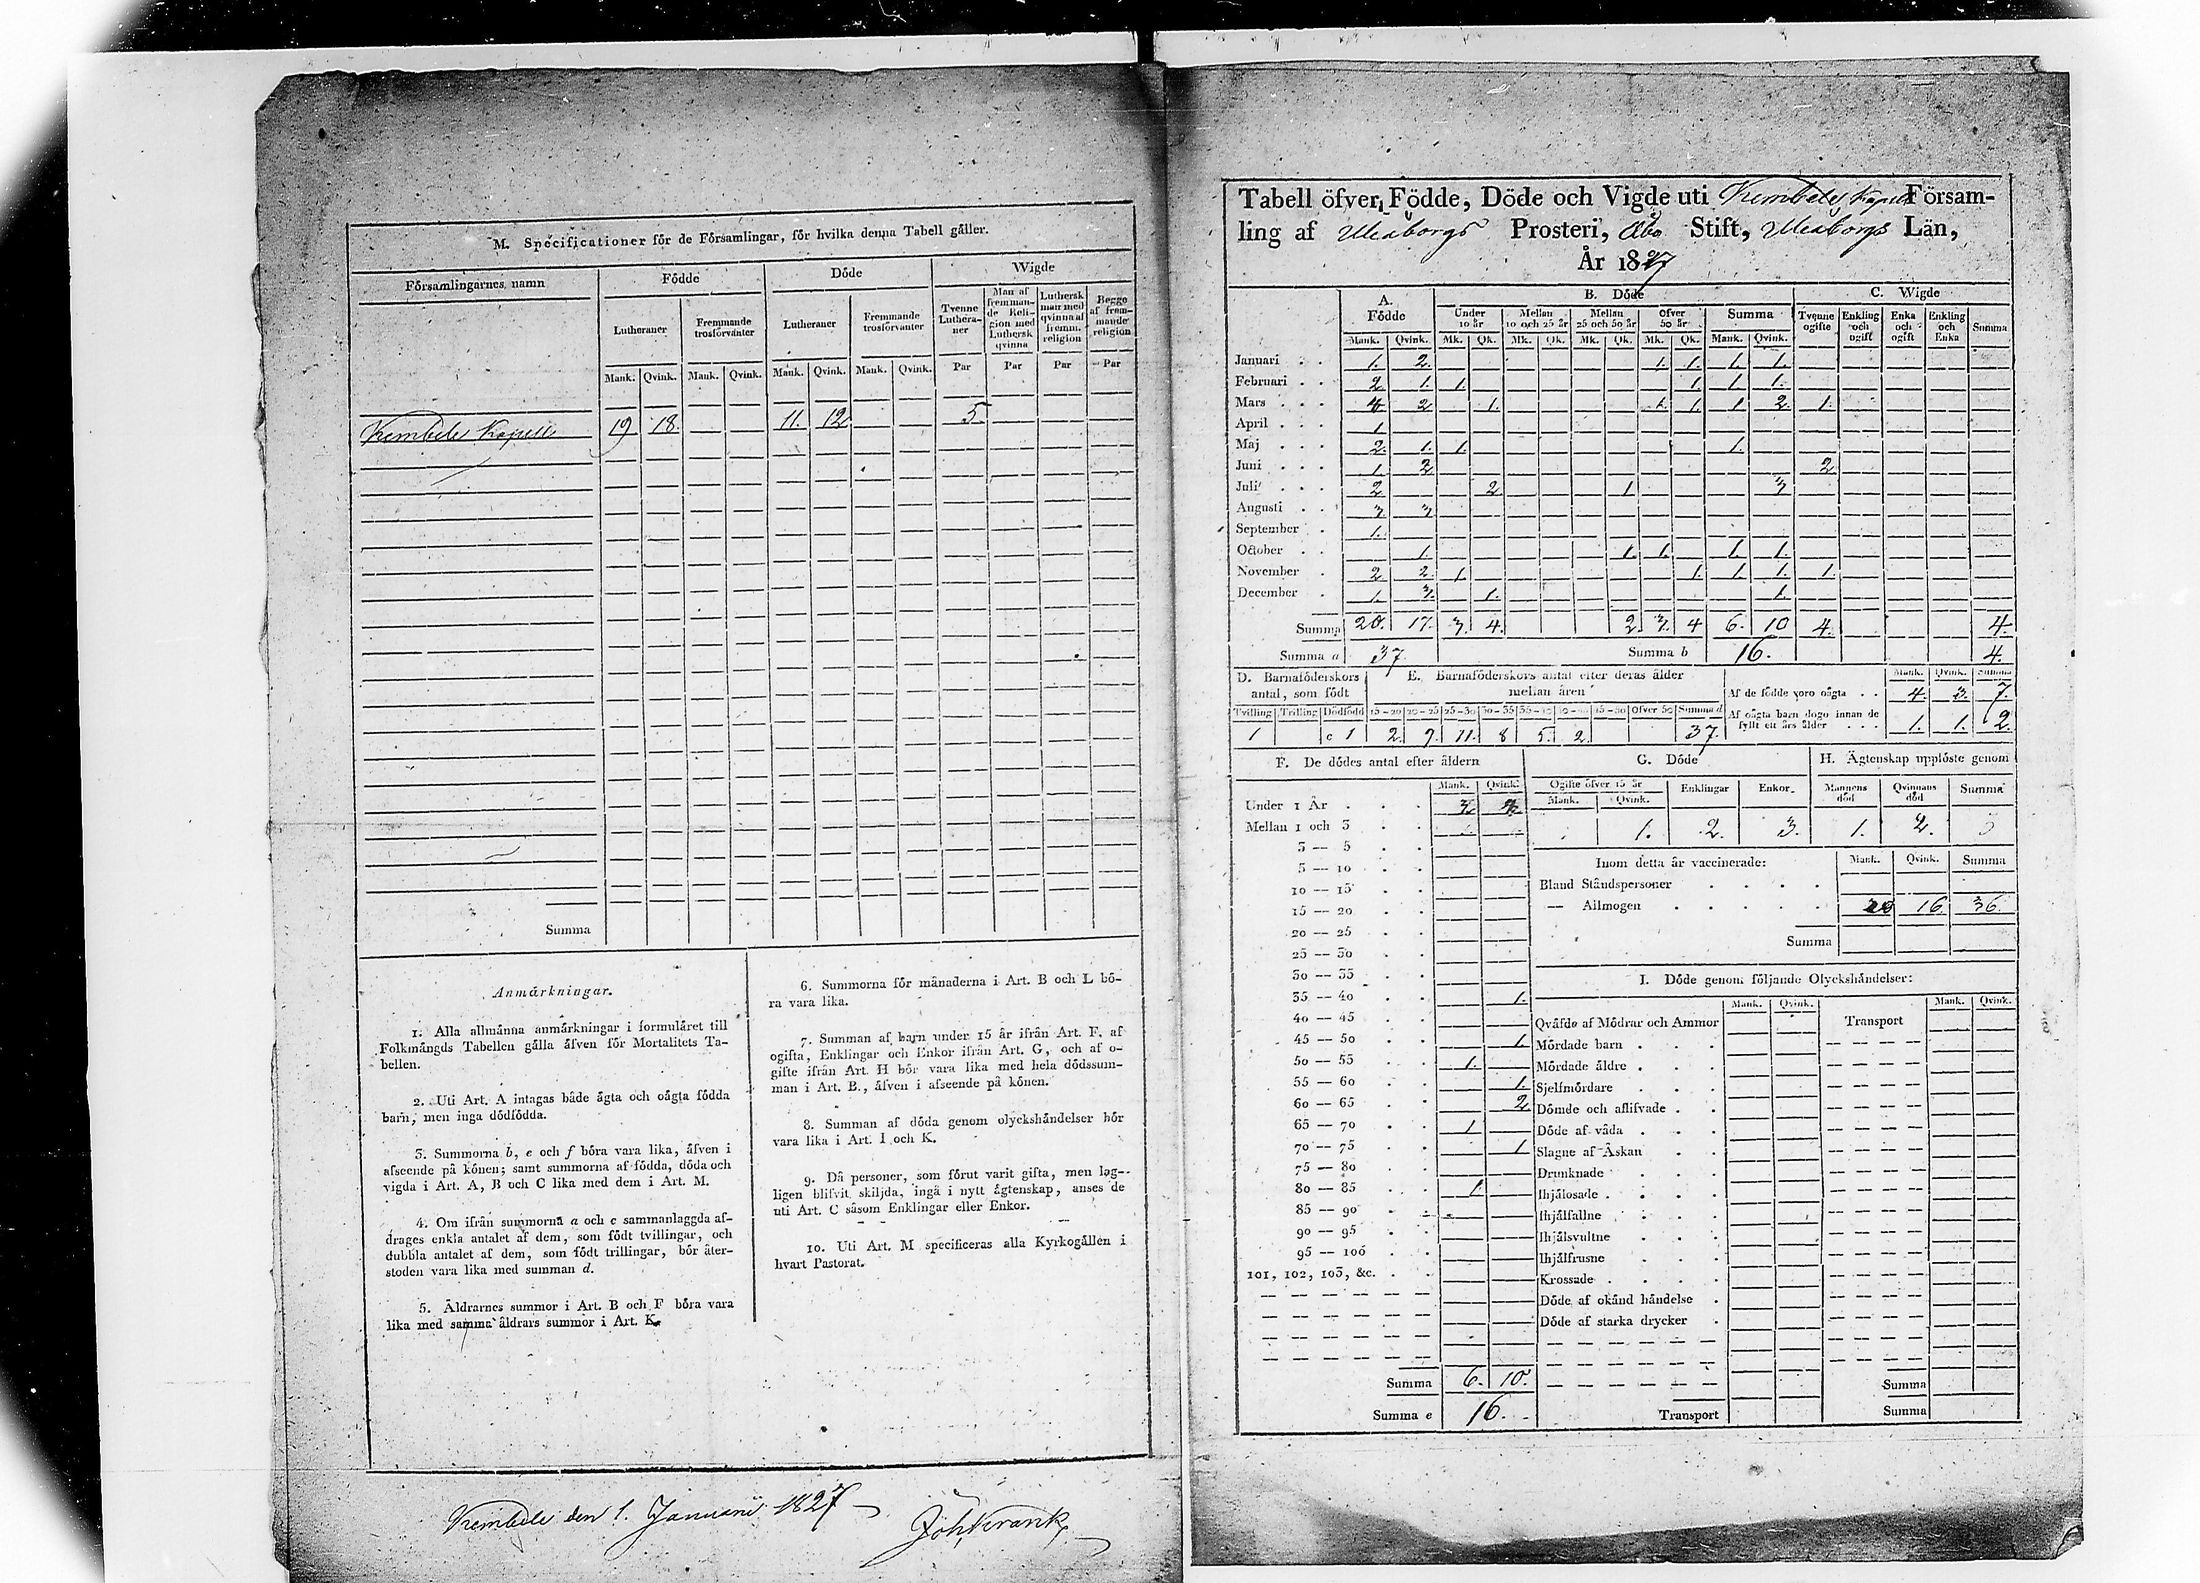 M. Specificationer för de Församlingar, för hvilka denna Tabell gäller.
Församlingarnes namn Födde Döde Wigde
Lutheraner Fremmande trosförvanter Lutheraner Fremmande trosförvanter Tvenne Lutheraner Man af fremmande Religion med Luthersk qvinna Luthersk man med qvinna af fremm. religion Begge af fremmande religion
Mank. Qvink. Mank. Qvink. Mank. Qvink. Mank. Qvink. Par Par Par Par
Kembele Kapell 19 18 11. 12 5
Summa
Anmärkningar.
1. Alla allmänna anmärkningar i formuläret till
Folkmängds Tabellen gälla äfven för Mortalitets Ta-
bellen.
2. Uti Art. A intagas både ägta och oägta födda
barn, men inga dödfödda.
3. Summorna b, e och f böra vara lika, äfven i
afseende på könen; samt summorna af födda, döda och
vigda i Art. A, B och C lika med dem i Art. M.
4. Om ifrån summorna a och c sammanlaggda af-
drages enkla antalet af dem, som födt tvillingar, och
dubbla antalet af dem, som födt trillingar, bör åter-
stoden vara lika med summan d.
5. Äldrarnes summor i Art. B och F böra vara
lika med samma äldrars summor i Art. K.
6. Summorna för månaderna i Art. B och L bö-
ra vara lika.
7. Summan af barn under 15 år ifrån Art. F. af
ogifta, Enklingar och Enkor ifrån Art. G, och af o-
gifte ifrån Art. H bör vara lika med hela dödssum-
man i Art. B., äfven i afseende på könen.
8. Summan af döda genom olyckshändelser bör
vara lika i Art. I och K.
9. Då personer, som förut varit gifta, men lag-
ligen blifvit skiljda, ingå i nytt ägtenskap, anses de
uti Art. C såsom Enklingar eller Enkor.
10. Uti Art. M specificeras alla Kyrkogällen i
hvart Pastorat.
Kembele den 1. Januarii 1827
Tabell öfver Födde, Döde och Vigde uti Kembele Kapell Försam-
ling af Uleåborgs Prosteri, Åbo Stift, Uleåborgs Län,
År 1827
A. Födde B. Döde C. Wigde
Under 10 år Mellan 10 och 25 år Mellan 25 och 50 år Öfver 50 år Summa Tvenne ogifte Enkling och ogift Enka och ogift Enkling och Enka Summa
Mank. Qvink. Mk. Qk. Mk. Qk. Mk. Qk. Mk. Qk. Mank. Qvink.
Januari 1. 2. 1. 1. 1. 1.
Februari 2 1. 1. 1. 1 1.
Mars 4 2 1. 1. 1. 1 2. 1.
April 1
Maj 2. 1. 1. 1.
Juni 1 2 2
Juli 2 2 1 3
Augusti 3 3
September 1.
October 1. 1. 1. 1. 1.
November 2 2. 1 1. 1. 1. 1.
December 1. 3. 1. 1.
Summa 20. 17. 3. 4. 2. 3. 4 6. 10 4. 4.
Summa a 37. Summa b 16. 4.
D. Barnaföderskors antal, som födt
Tvilling Trilling Dödfödd
1 c 1
E. Barnaföderskors antal efter deras ålder mellan åren
15-20 20-25 25-30 30-35 35-40 40-45 45-50 Öfver 50 Summa d
2. 9. 11. 8 5. 2. 37.
Mank. Qvink. Summa
Af de födde voro oägta 4. 3. 7.
Af oägta barn dogo innan de fyllt ett års ålder 1. 1. 2.
F. De dödes antal efter åldern
Mank. Qvink.
Under 1 År 3 4
Mellan 1 och 3
3 — 5
5 — 10
10 — 15
15 — 20
20 — 25
25 — 30
30 — 35
35 — 40 1.
40 — 45
45 — 50 1.
50 — 55 1.
55 — 60 1.
60 — 65 2
65 — 70 1
70 — 75 1
75 — 80
80 — 85 1.
85 — 90
90 — 95
95 — 100
101, 102, 103, &c.
Summa 6. 10.
Summa e 16.
G. Döde
Ogifte öfver 15 år Enklingar Enkor
Mank. Qvink.
1. 2. 3.
H. Ägtenskap upplöste genom
Mannens död Qvinnans död Summa
1. 2. 3
Inom detta år vaccinerade: Mank. Qvink. Summa
Bland Ståndspersoner
— Allmogen 20 16 36.
Summa
I. Döde genom följande Olyckshändelser:
Mank. Qvink. Mank. Qvink.
Qväfde af Mödrar och Ammor Transport
Mördade barn
Mördade äldre
Sjelfmördare
Dömde och aflifvade
Döde af våda
Slagne af Åskan
Drunknade
Ihjälosade
Ihjälfallne
Ihjälsvultne
Ihjälfrusne
Krossade
Döde af okänd händelse
Döde af starka drycker
Summa
Transport Summa